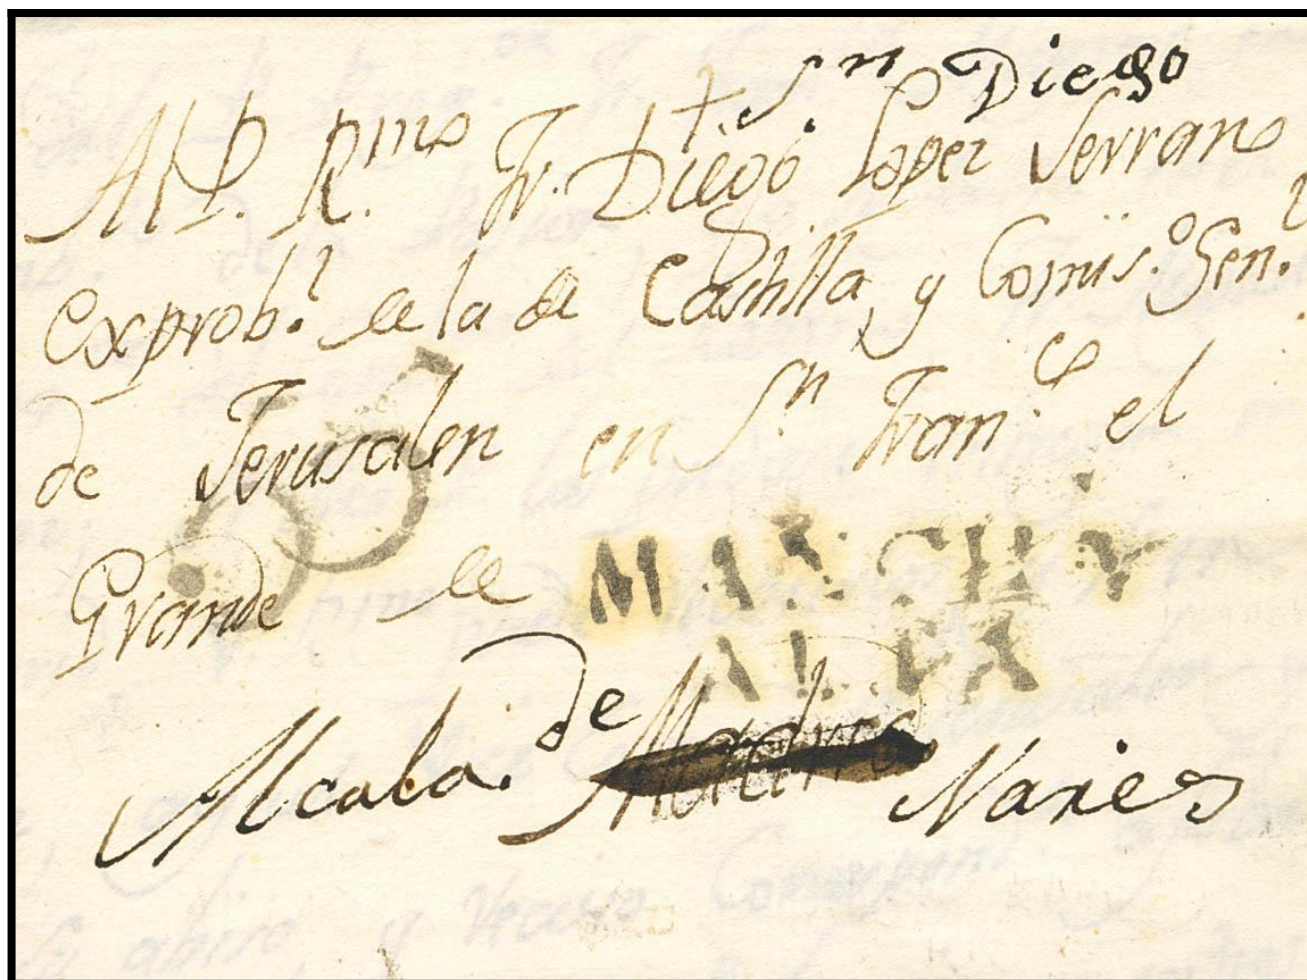 Sn. Diego
Al P. Rmo. Fr. Diego Lopez Serrano
Exprobl. de la de Castilla, y Comiso. Genl.
de Jerusalen en Sn. Franco. el
Grande de
MANCHA
ALTA
Alcala. de Madrid Nares